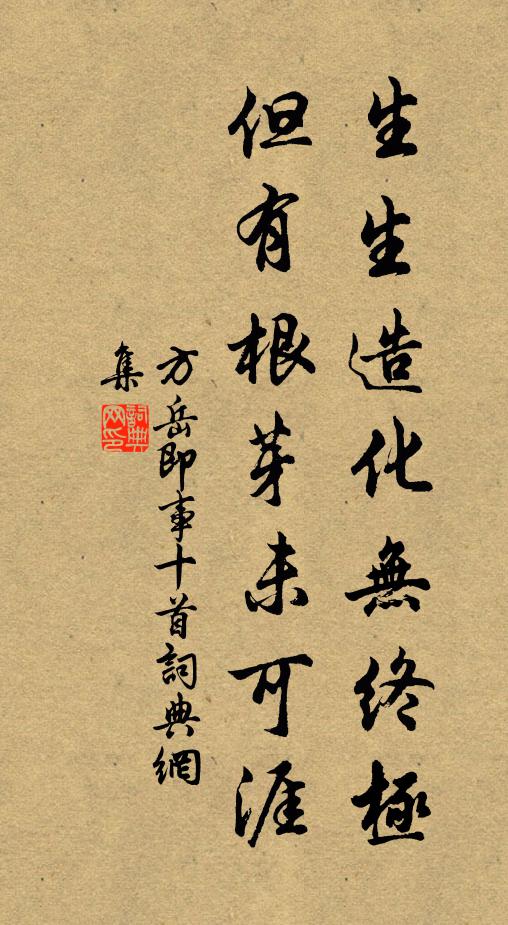 生生造化無終極
但有根芽未可涯
方岳即事十首詞典網
集
詞典網印